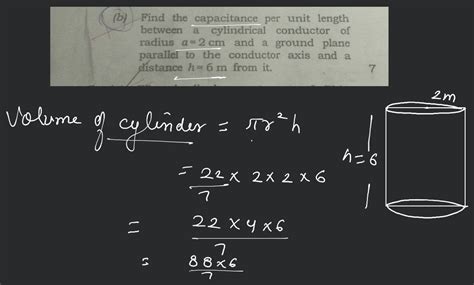 (b) Find the capacitance per unit length
between a cylindrical conductor of
radius a=2 cm and a ground plane
parallel to the conductor axis and a
distance h=6 m from it. 7
Volume of cylinder = πr²h
= 22/7 × 2 × 2 × 6
= 22 × 4 × 6 / 7
= 88 × 6 / 7
2m
h=6